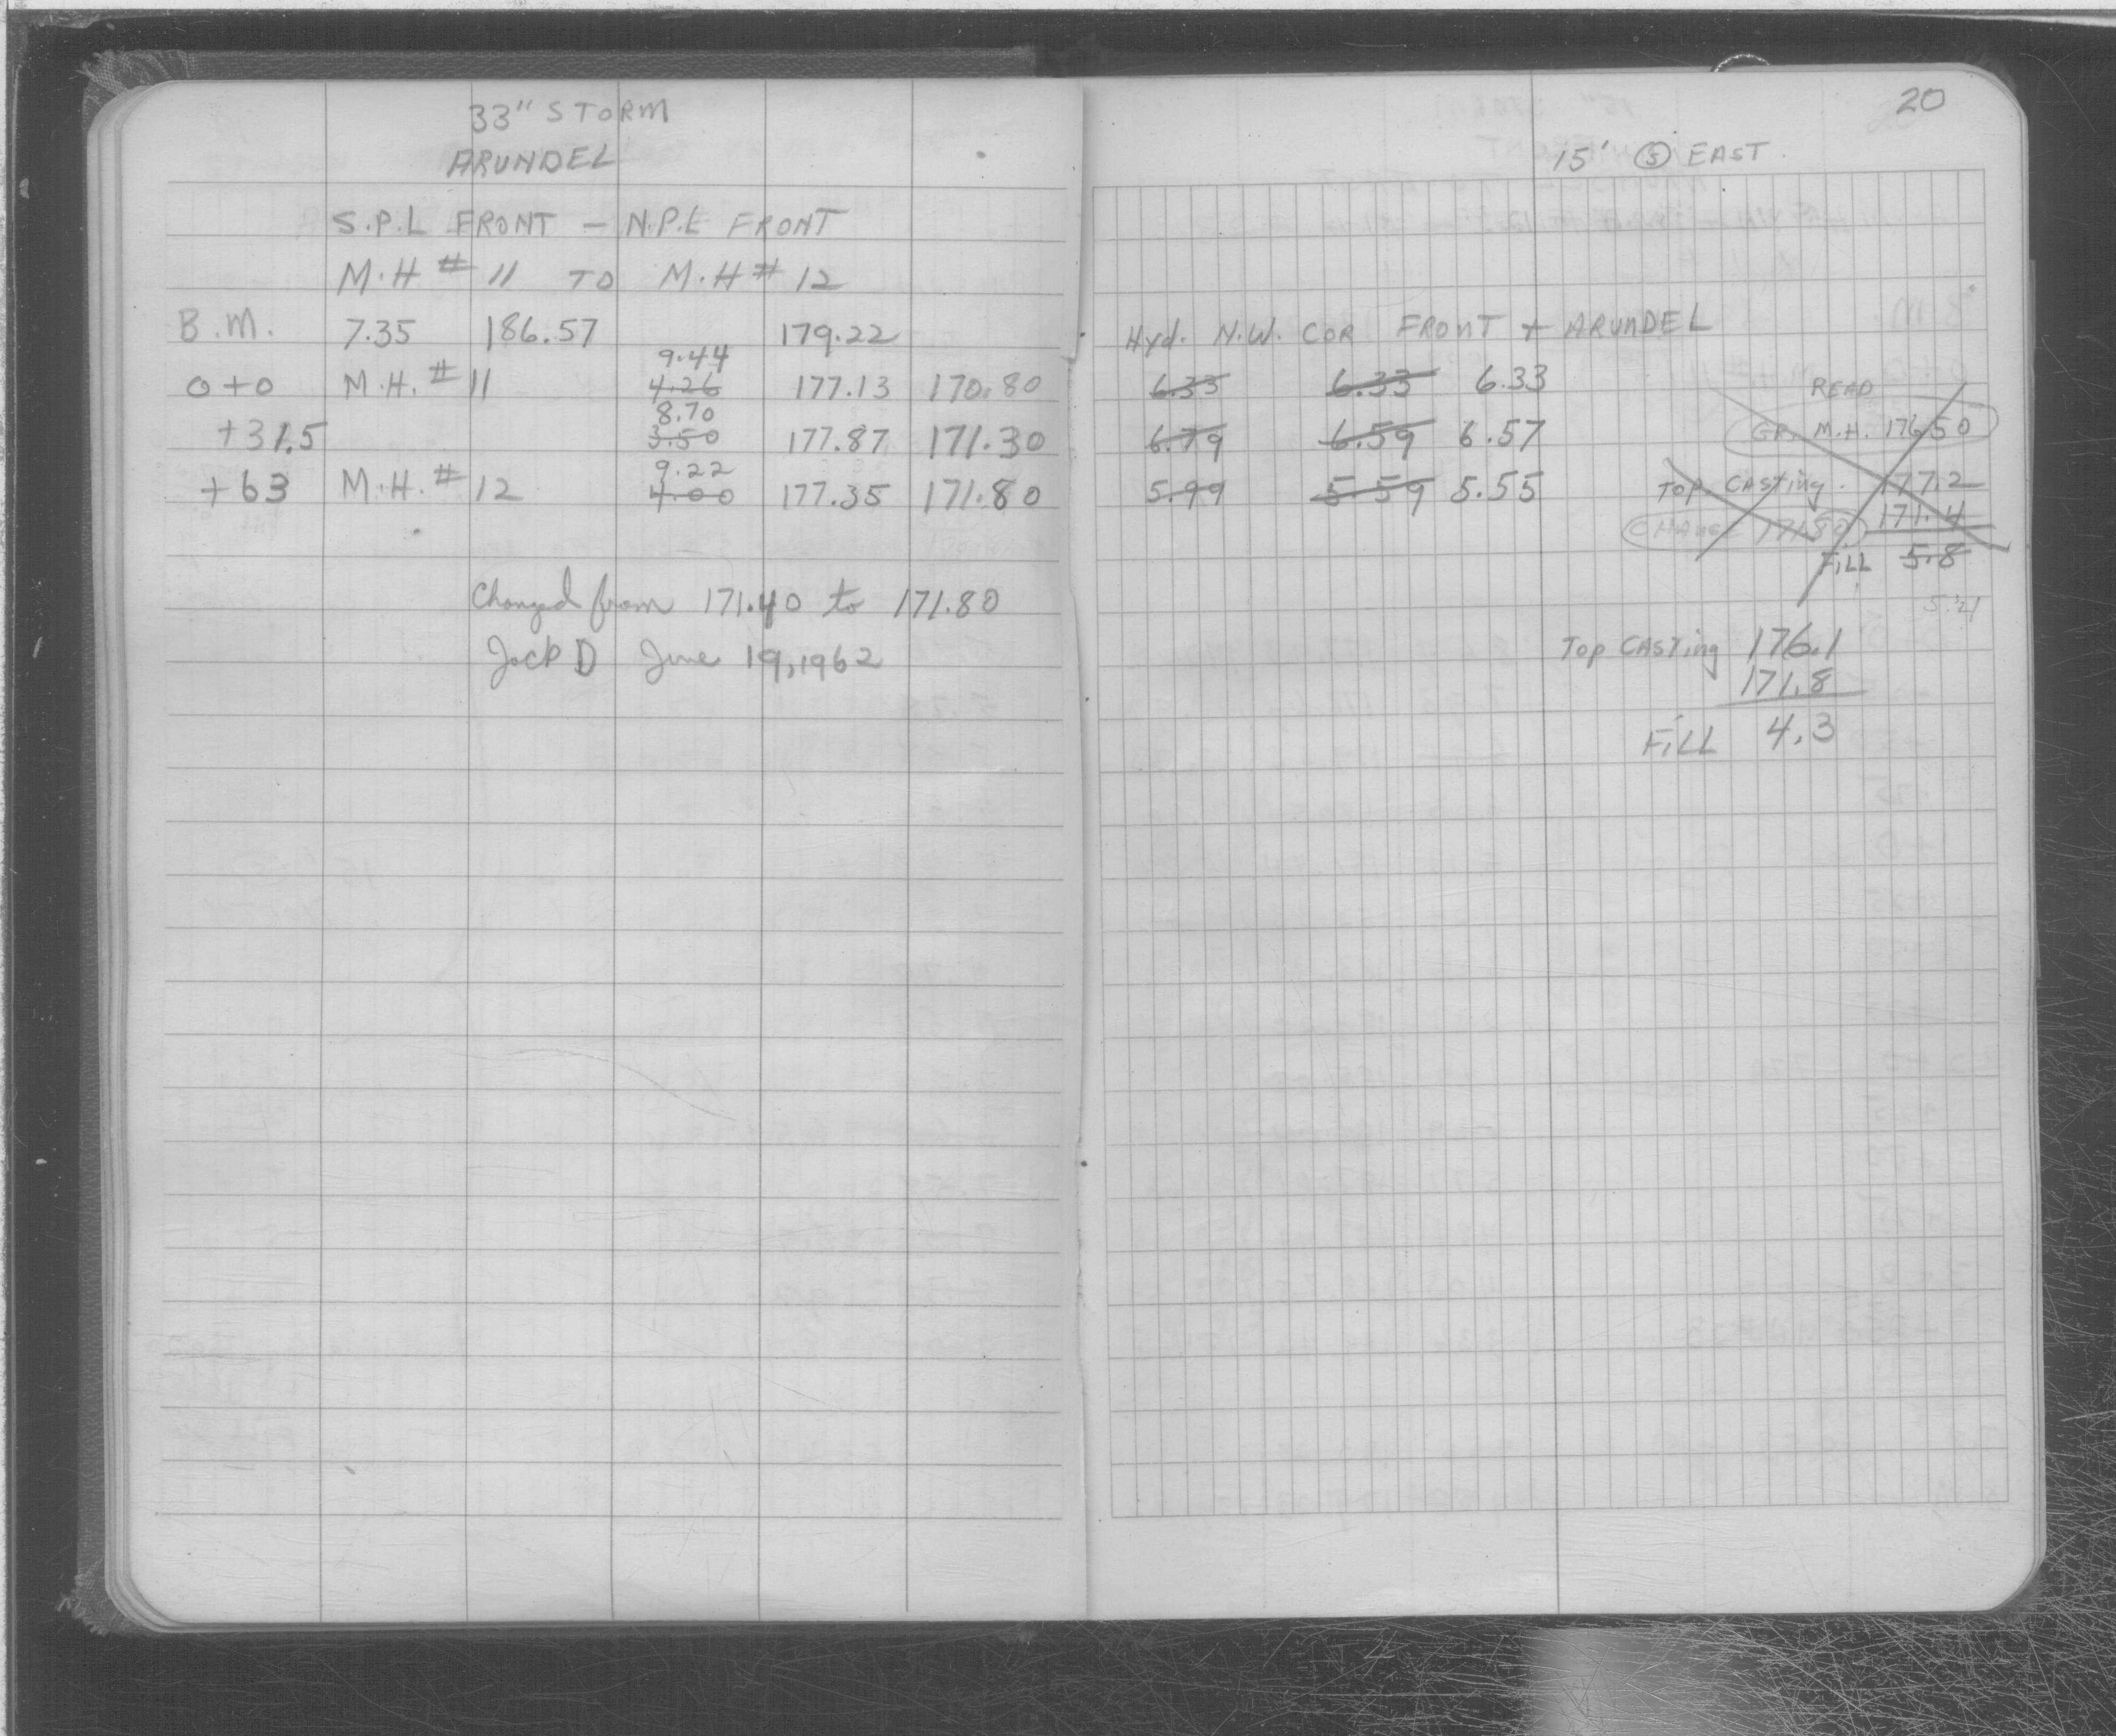 33" STORM
ARUNDEL
S.P.L FRONT - N.P.L FRONT
M.H # 11 TO M.H # 12
B.M. 7.35 186.57 179.22
9.44
0+0 M.H. # 11 4.26 177.13 170.80
8.70
+31.5 3.50 177.87 171.30
9.22
+63 M.H. # 12 4.00 177.35 171.80
Changed from 171.40 to 171.80
Jack D June 19, 1962
20
15' (S) EAST
Hyd. N.W. COR FRONT + ARUNDEL
6.33 6.33 6.33
6.79 6.59 6.57
5.99 5.59 5.55
READ
GR. M.H. 176.50
TOP CASTing. 177.2
171.80 171.4
FiLL 5.8
5.21
TOP CASTing 176.1
171.8
FiLL 4.3